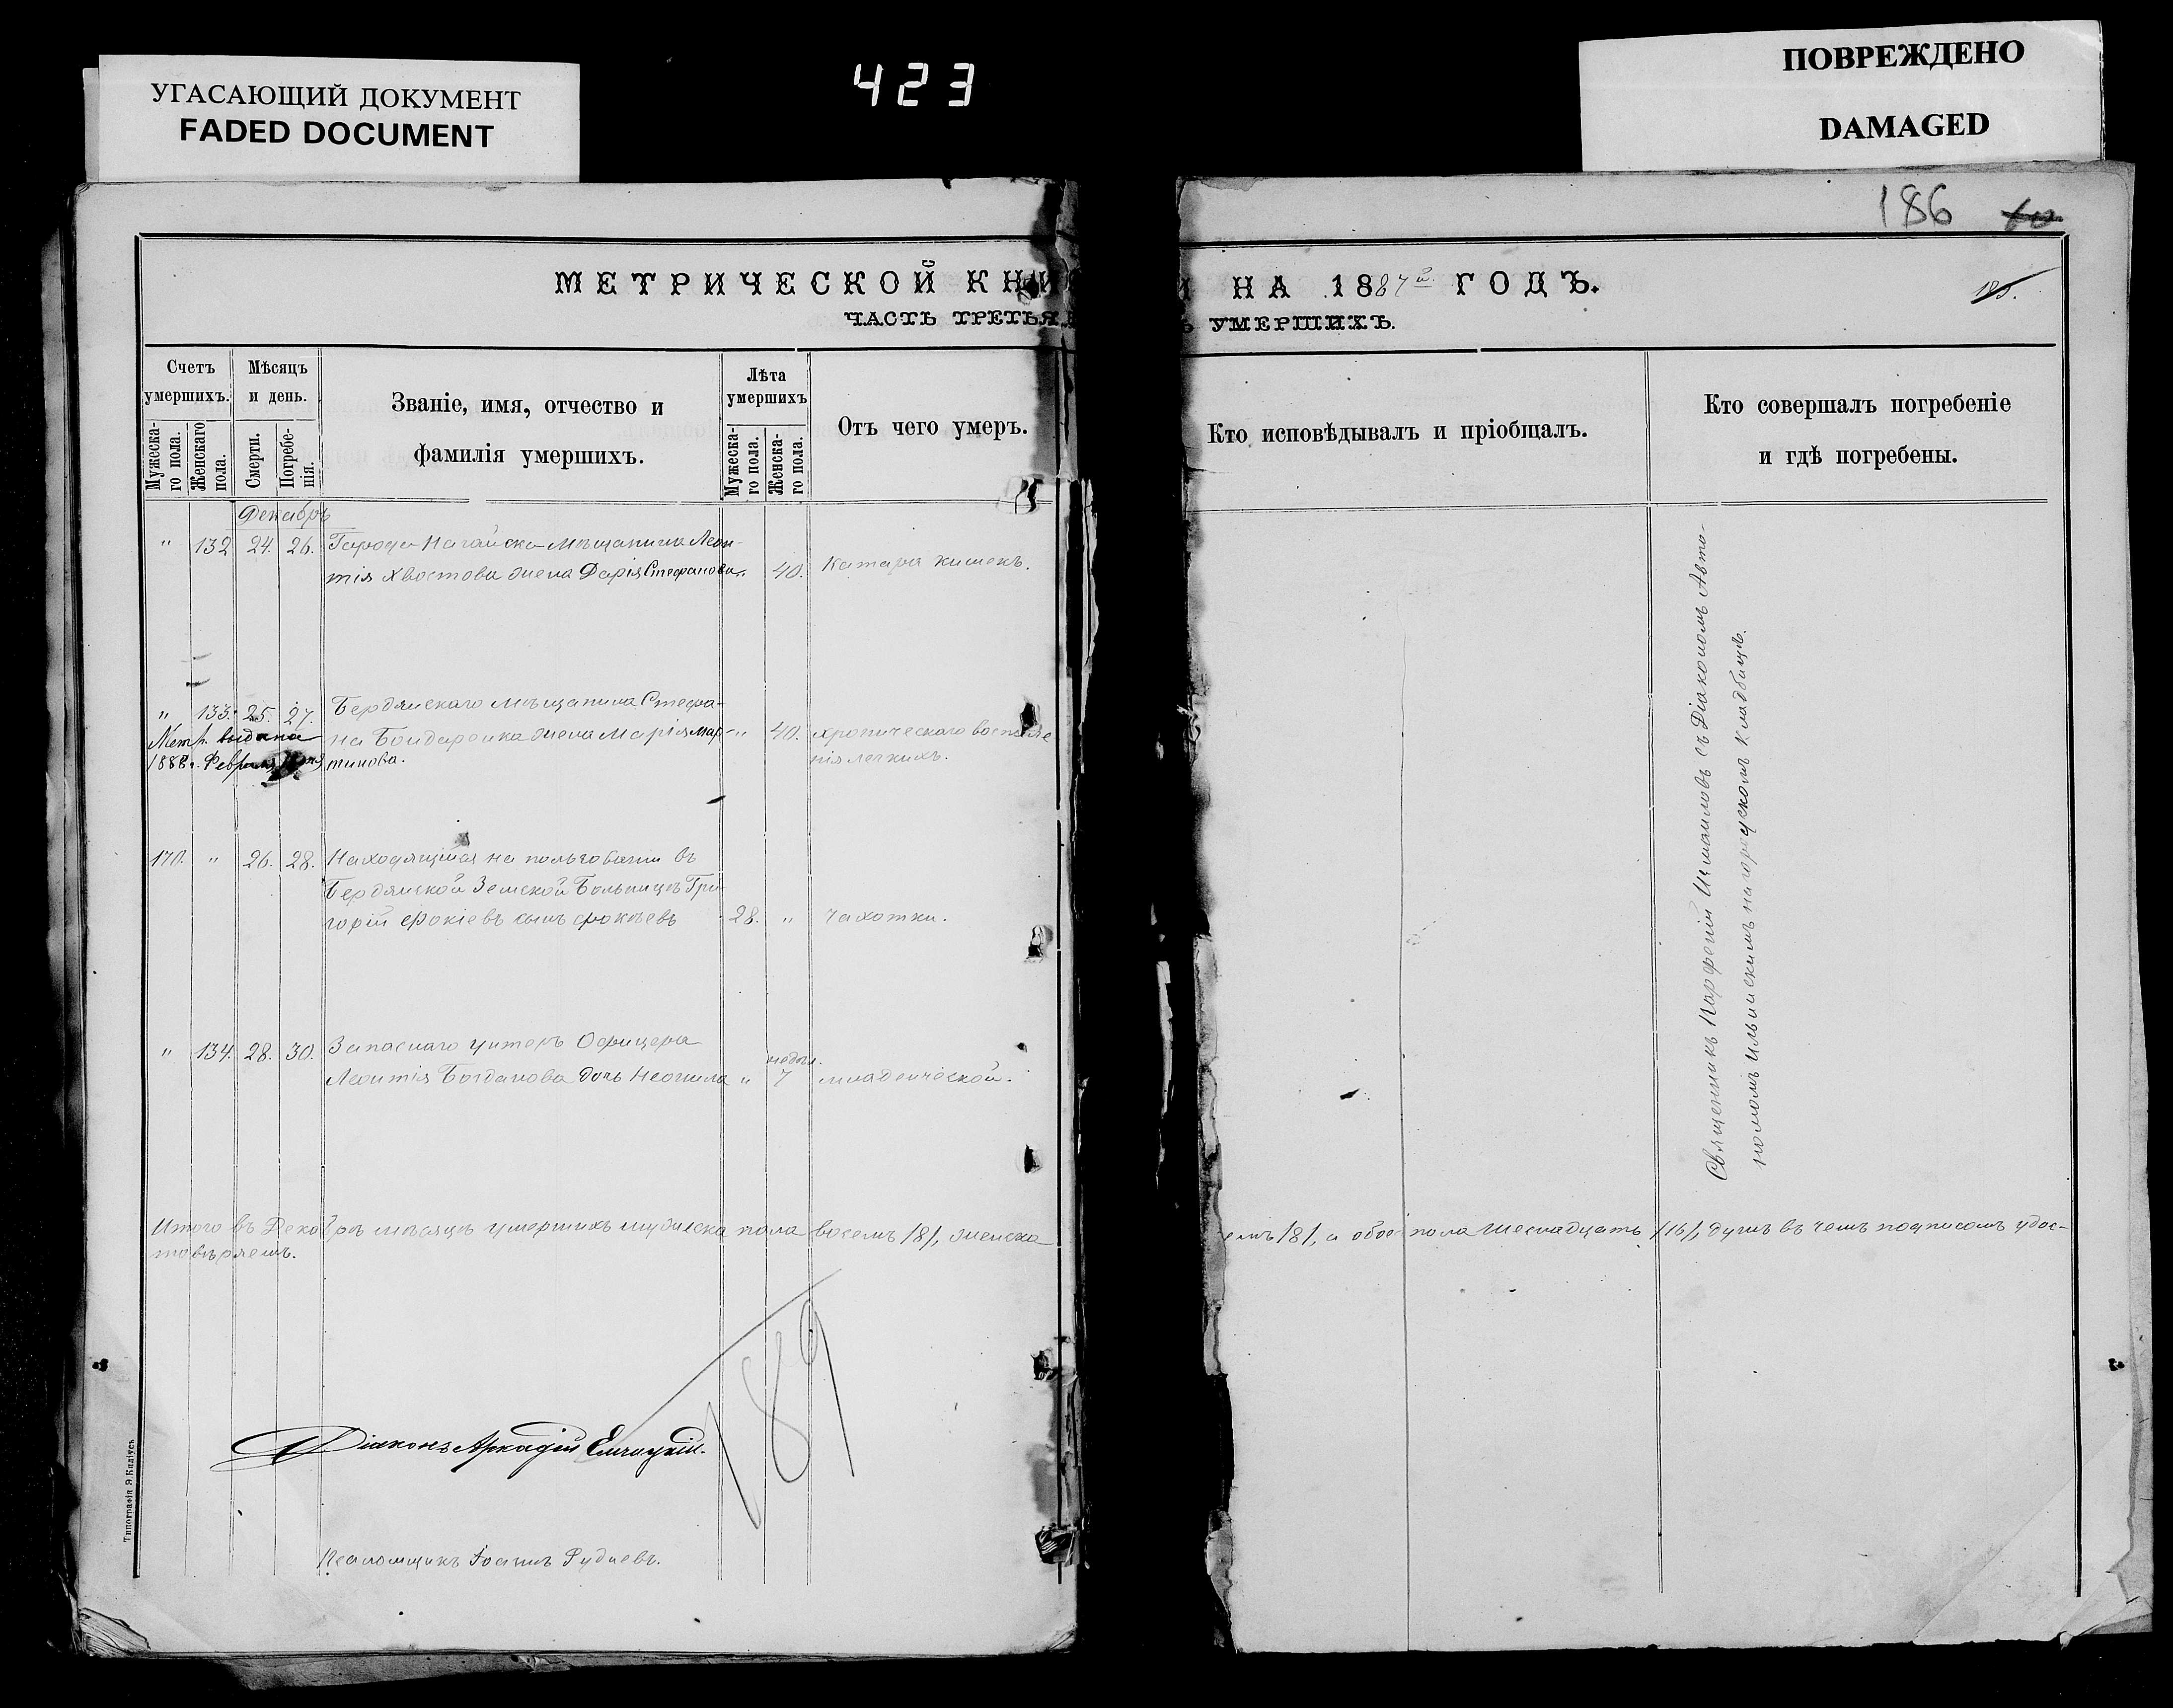 УГАСАЮЩИЙ ДОКУМЕНТ
FADED DOCUMENT
423
ПОВРЕЖДЕНО
DAMAGED
186
МЕТРИЧЕСКОЙ КНИ И НА 1887й ГОДЪ.
185.
ЧАСТЬ ТРЕТЬЯ УМЕРШИХЪ.
Счетъ умершихъ.
Мужеска-го пола.
Женскаго пола.
Мѣсяцъ и день.
Смерти.
Погребе-нія.
Званіе, имя, отчество и
фамилія умершихъ.
Лѣта умершихъ
Мужеска-го пола.
Женска-го пола.
Отъ чего умеръ.
Кто исповѣдывалъ и пріобщалъ.
Кто совершалъ погребеніе
и гдѣ погребены.
Декабрь
" 132 24. 26. Города Нагайска мѣщанина Леон-
тія Хвостова жена Дарія Стефанова " 40. Катара кишекъ.
" 133. 25. 27. Бердянскаго мѣщанина Стефа-
на Бондаренка жена Марія Мар- " 40. хроническаго воспале
тинова. нія легкихъ.
Метр. выдана
1888 г. Февраля
170. " 26. 28. Находящійся на пользованіи въ
Бердянской Земской Больницѣ Гри
горій Фокіевъ сынъ Фокѣевъ 28. " чахотки.
" 134. 28. 30. Запаснаго унтеръ Офицера
Леонтія Богданова дочь Неонила " 7 недѣл. младенческой.
Священникъ Парфеній Измаиловъ съ Діакономъ Авто-
номомъ Ильинскимъ на городскомъ кладбищѣ.
Итого въ Декабрѣ мѣсяцѣ умершихъ мужеска пола восемь /8/, женска
емь /8/, а обоего пола шестнадцать /16/, душъ въ чемъ подписомъ удос-
товѣряемъ.
189
Діаконъ Аркадій
Псаломщикъ Іоаннъ Рудневъ.
Типографія Э. Киліусъ